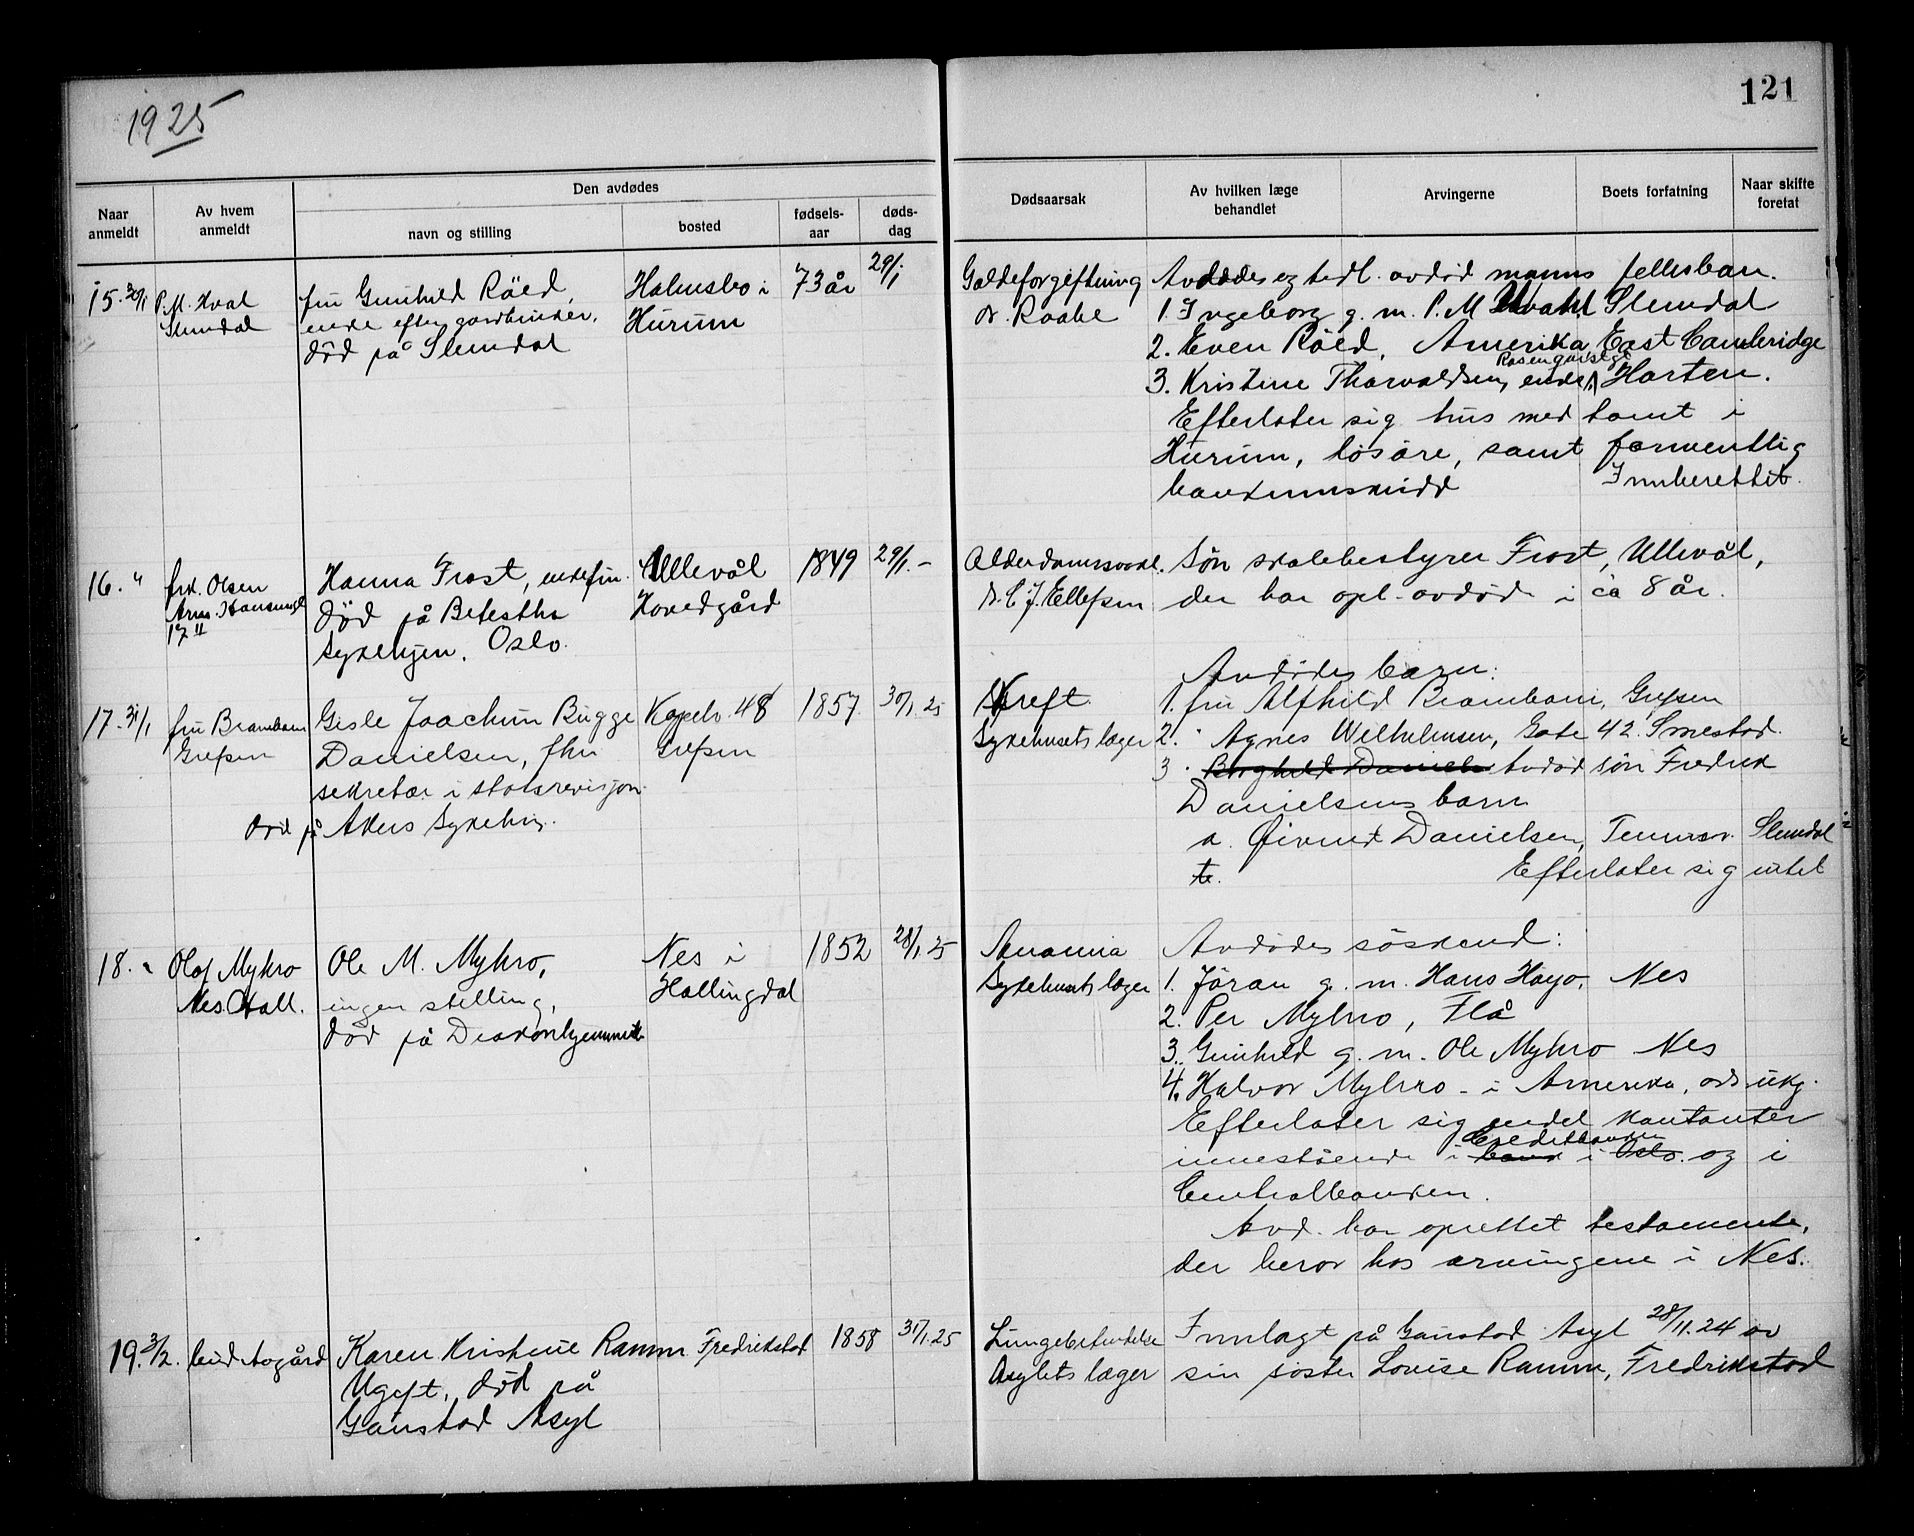 1925
121
Den avdødes
Naar anmeldt
Av hvem anmeldt
navn og stilling
bosted
fødsels-aar
døds-dag
Dødsaarsak
Av hvilken læge behandlet
Arvingerne
Boets forfatning
Naar skifte foretat
15. 30/1 P.M. Hval
Slemdal
fru Gunhild Röed,
enke efter gardbruker,
død på Slemdal
Holmsbo i
Hurum
73 år
29/1
Galdeforgiftning
dr. Raabe
Avdødes og tidl. avdød manns fellesbarn.
1. Ingeborg g. m. P. M Hvahl Slemdal
2. Even Röed, Amerika East Cambridge
3. Kristine Thorvaldsen, enke, Horten.
Efterlater sig hus med tomt i
Hurum, løsøre, samt formentlig
bankinnskudd Innberettet.
16. " frk. Olsen
17 II
Hanna Frost, enkefru.
død på Betestha
sykehjem. Oslo.
Ullevål
Hovedgård
1849
29/1.-
Alderdomssvakk.
dr. C. J. Ellefsen
Søn skolebestyrer Frost, Ullevål,
der har opl. avdød i ca 8 år.
17. 31/1 fru Brambani
Grefsen
Gisle Joachim Bugge
Danielsen, fhv
sekretær i statsrevisjon
død på Akers sykehus.
Kapelv. 48
Grefsen
1857
30/1. 25
Kreft
Sykehusets læger
Avdødes barn:
1. fru Alfhild Brambani, Grefsen
2. " Agnes Wilhelmsen, Gate 42. Smestad.
3 " Borghild Daniels Avdød søn Fredrik
Danielsens barn
a. Øivind Danielsen, Tennisv. Slemdal
b.
Efterlater sig intet
18. " Olaf Myhro
Nes. Hall.
Ole M. Myhro,
ingen stilling,
død på Diakonhjemmet
Nes i
Hallingdal
1852
28/1 25
Anæmia
Sykehusets læger
Avdødes söskend:
1. Jöran g. m. Hans Höyo, Nes
2. Per Myhro, Flå
3. Gunhild g. m. Ole Myhro Nes
4. Halvor Myhro - i Amerika, ads. ukj.
Efterlater sig endel kontanter
Creditbanken
innestående i bank i Oslo. og i
Centralbanken.
Avd. har oprettet testamente,
der beror hos arvingene i Nes.
19. 3/2.
Karen Kristine Ramm
Ugift, død på
Gaustad Asyl
Fredrikstad
1858
31/1.25
Lungebetendelse
Asylets læger
Innlagt på Gaustad Asyl 28/11.24 av
sin søster Lovise Ramm, Fredrikstad